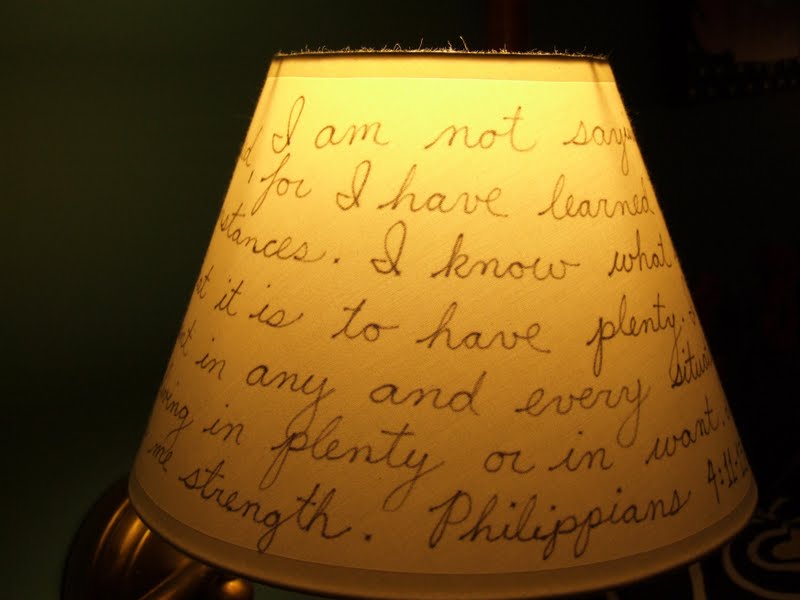 I am not
, for I have learned
stances. I know what
it is to have plenty.
in any and every
in plenty or in want.
me strength. Philippians 4:11-